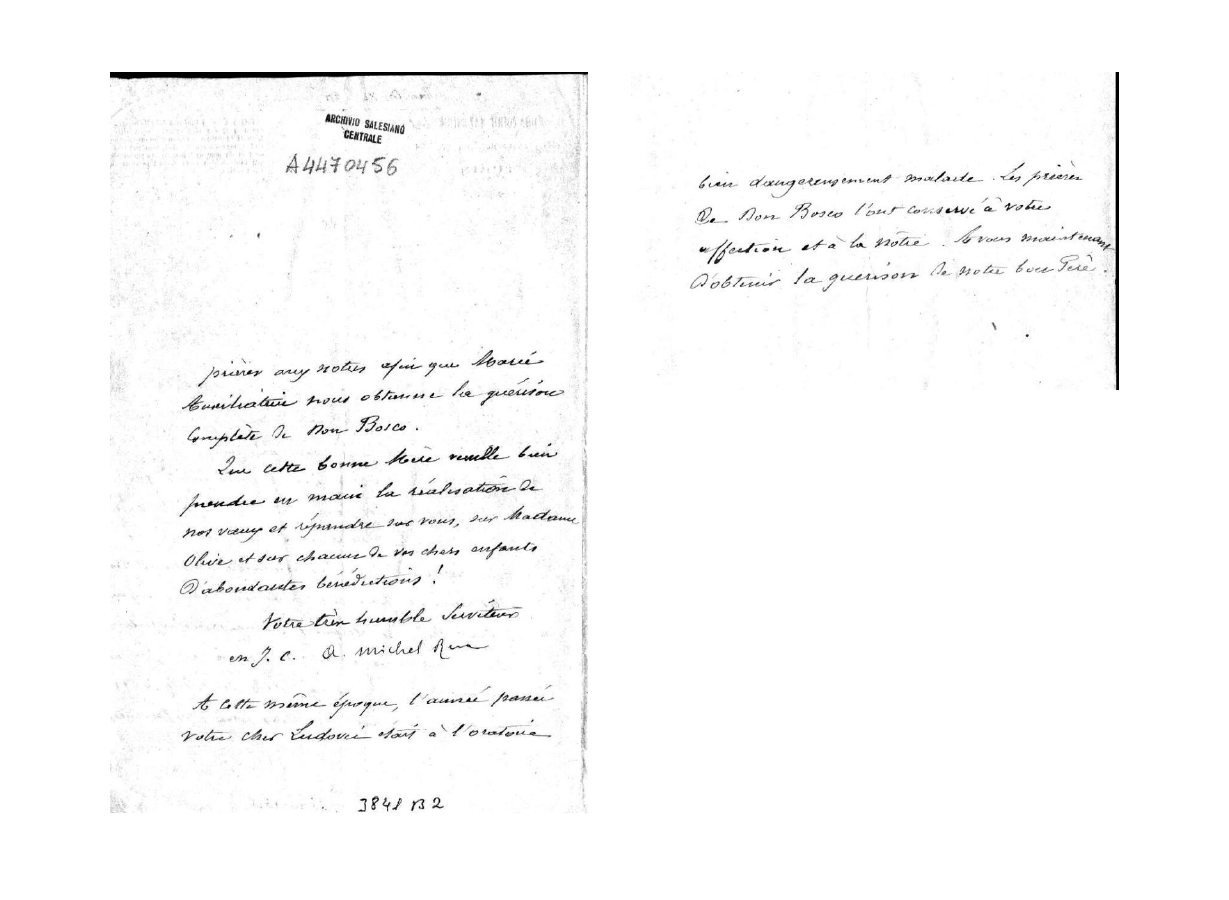 ARCHIVIO SALESIANO
CENTRALE
A4470456
prières aux notres afin que Marie
Auxiliatrice nous obtienne la guérison
complète de Don Bosco.
Que cette bonne Mère veuille bien
prendre en main la réalisation de
nos vœux et répandre sur vous, sur Madame
Olive et sur chacun de vos chers enfants
d'abondantes bénédictions !
Votre très humble Serviteur
en J. C. a. michel Rua
A cette même époque, l'année passée
votre cher Ludovic était à l'oratoire
3841 B2
bien dangereusement malade. Les prières
de Don Bosco l'ont conservé à votre
affection et à la nôtre. A vous maintenant
d'obtenir la guérison de notre bon Père.